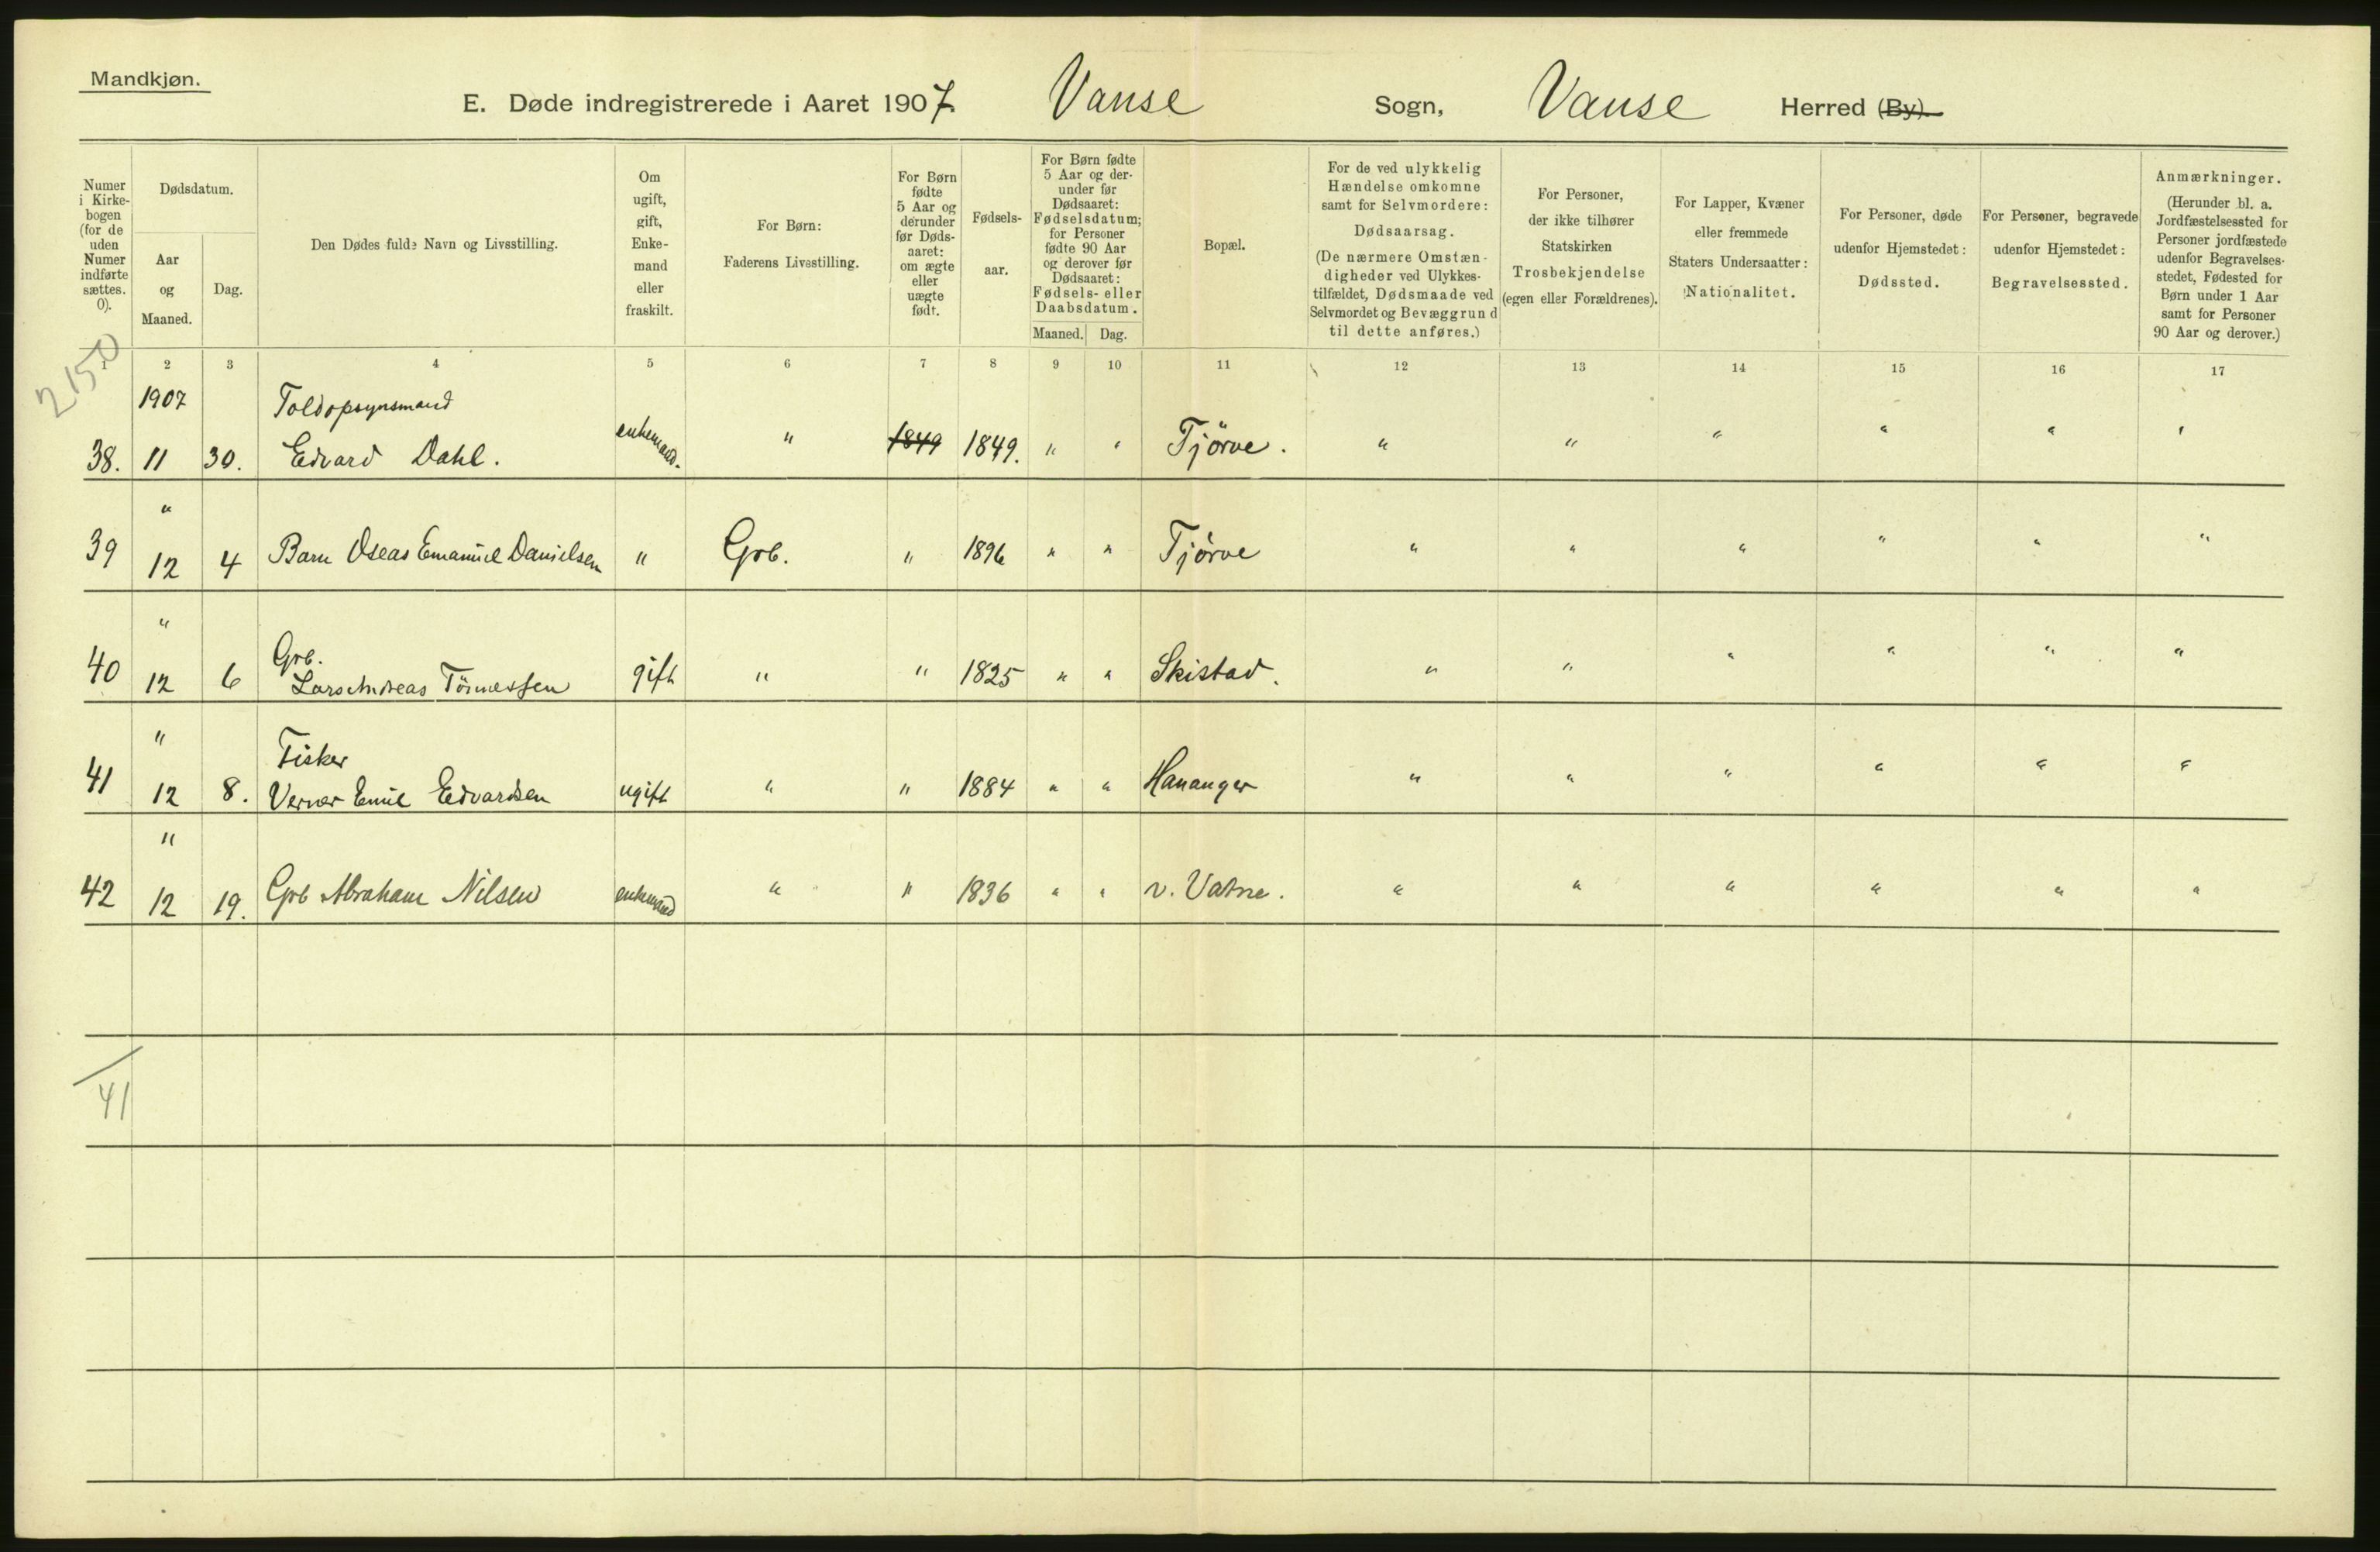 Mandkjøn.
E. Døde indregistrerede i Aaret 1907. Vanse Sogn, Vanse Herred (By).
Numer i Kirke-bogen (for de uden Numer indførte sættes. 0).
Dødsdatum.
Aar og Maaned.
Dag.
Den Dødes fulde Navn og Livsstilling.
Om ugift, gift, Enke-mand eller fraskilt.
For Børn: Faderens Livsstilling.
For Børn fødte 5 Aar og derunder før Døds-aaret: om ægte eller uægte født.
Fødsels-aar.
For Børn fødte 5 Aar og der-under før Dødsaaret: Fødselsdatum; for Personer fødte 90 Aar og derover før Dødsaaret: Fødsels- eller Daabsdatum.
Maaned. Dag.
Bopæl.
For de ved ulykkelig Hændelse omkomne samt for Selvmordere: Dødsaarsag. (De nærmere Omstæn-digheder ved Ulykkes-tilfældet, Dødsmaade ved Selvmordet og Bevæggrund til dette anføres.)
For Personer, der ikke tilhører Statskirken Trosbekjendelse (egen eller Forældrenes).
For Lapper, Kvæner eller fremmede Staters Undersaatter: Nationalitet.
For Personer, døde udenfor Hjemstedet: Dødssted.
For Personer, begravede udenfor Hjemstedet: Begravelsessted.
Anmærkninger. (Herunder bl. a. Jordfæstelsessted for Personer jordfæstede udenfor Begravelses-stedet, Fødested for Børn under 1 Aar samt for Personer 90 Aar og derover.)
1 2 3 4 5 6 7 8 9 10 11 12 13 14 15 16 17
2150
1907 Toldopsynsmand
38. 11 30. Edvard Dahl. enkemand. " 1849 1849. " " Tjörve. " " " " " "
"
39 12 4 Barn Oseas Emanuel Danielsen " Grb. " 1896 " " Tjörve " " " " " "
"
Grb.
40 12 6 Lars Andreas Tönnessen gift " " 1825 " " Skistad. " " " " " "
"
Fisker
41 12 8. Verner Emil Edvardsen ugift " " 1884 " " Hananger " " " " " "
"
42 12 19. Grb Abraham Nilsen enkemand " " 1836 " " v. Vatne. " " " " " "
41